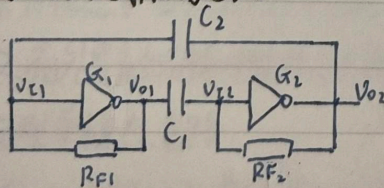 C₂
V_I1 G₁ V_O1 V_I2 G₂ V_O2
C₁
R_F1 R_F2